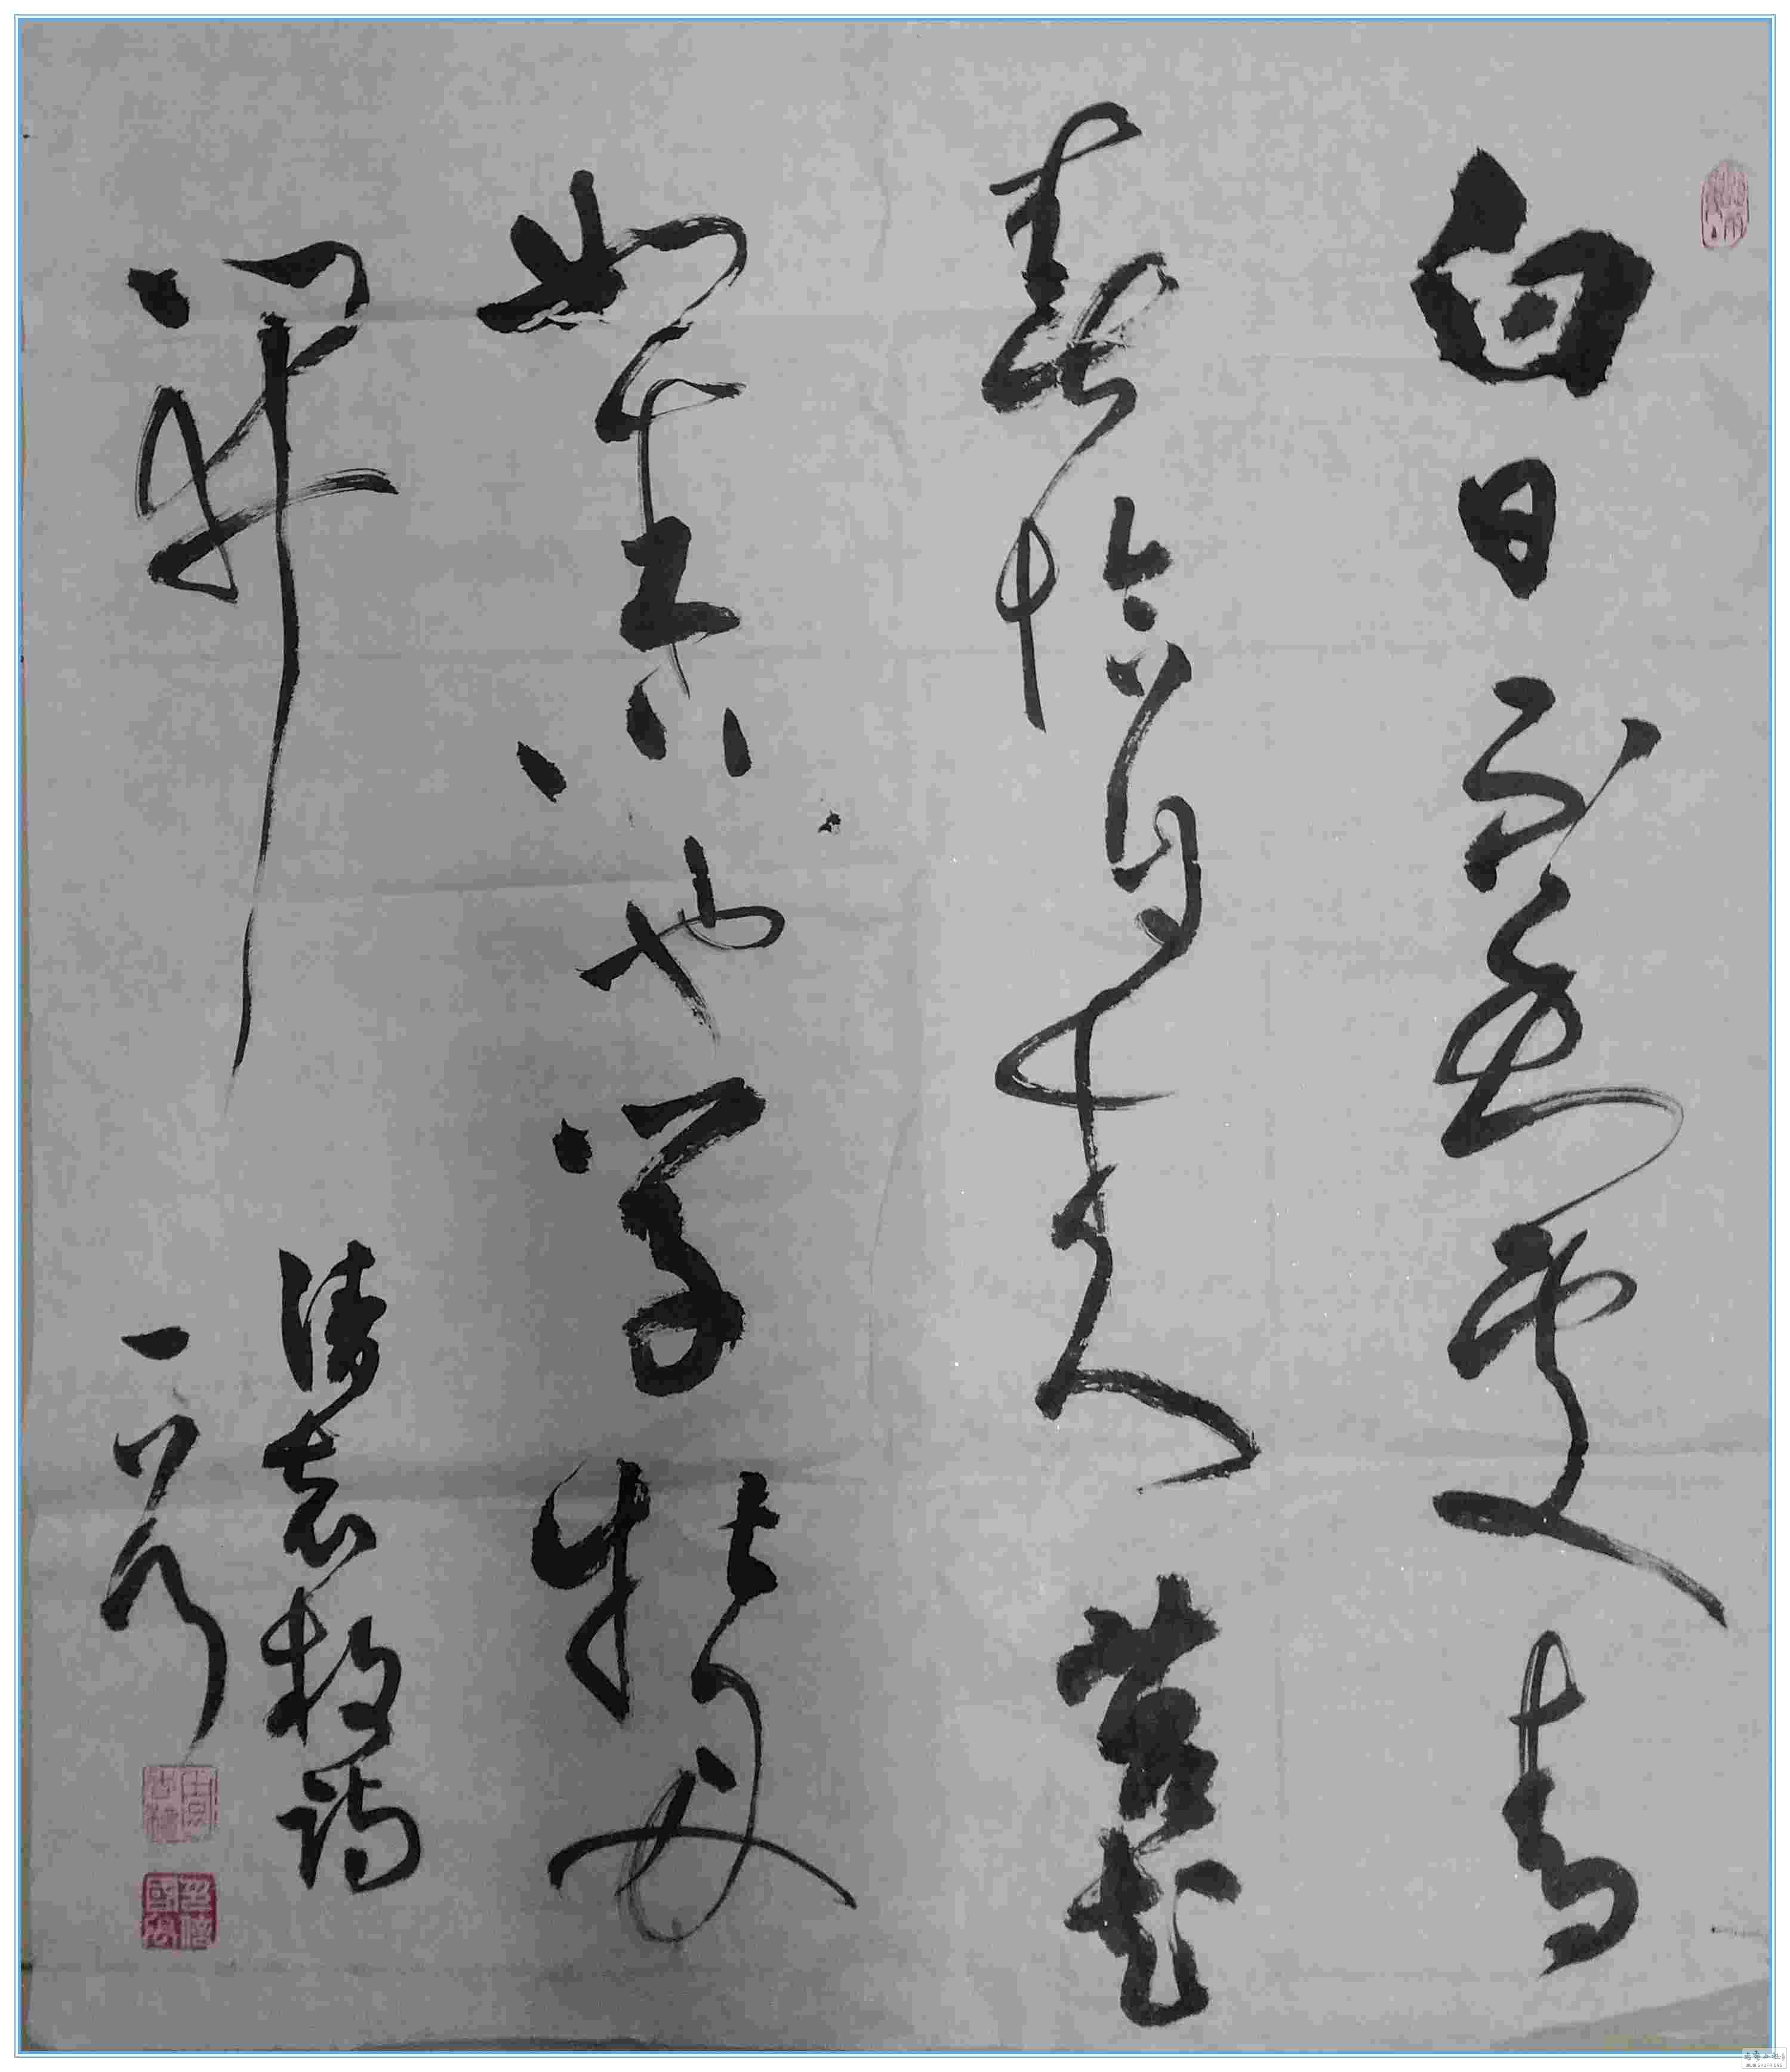 白日不到处青
春恰自来苔花
如米小也学牡丹
开
清袁枚诗
一